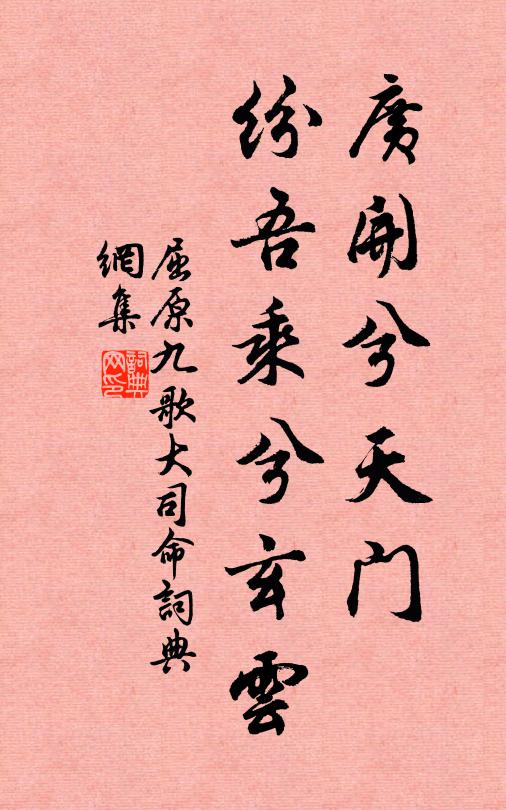 廣開兮天門
紛吾乘兮玄雲
屈原九歌大司命詞典
網集
詞典
网印